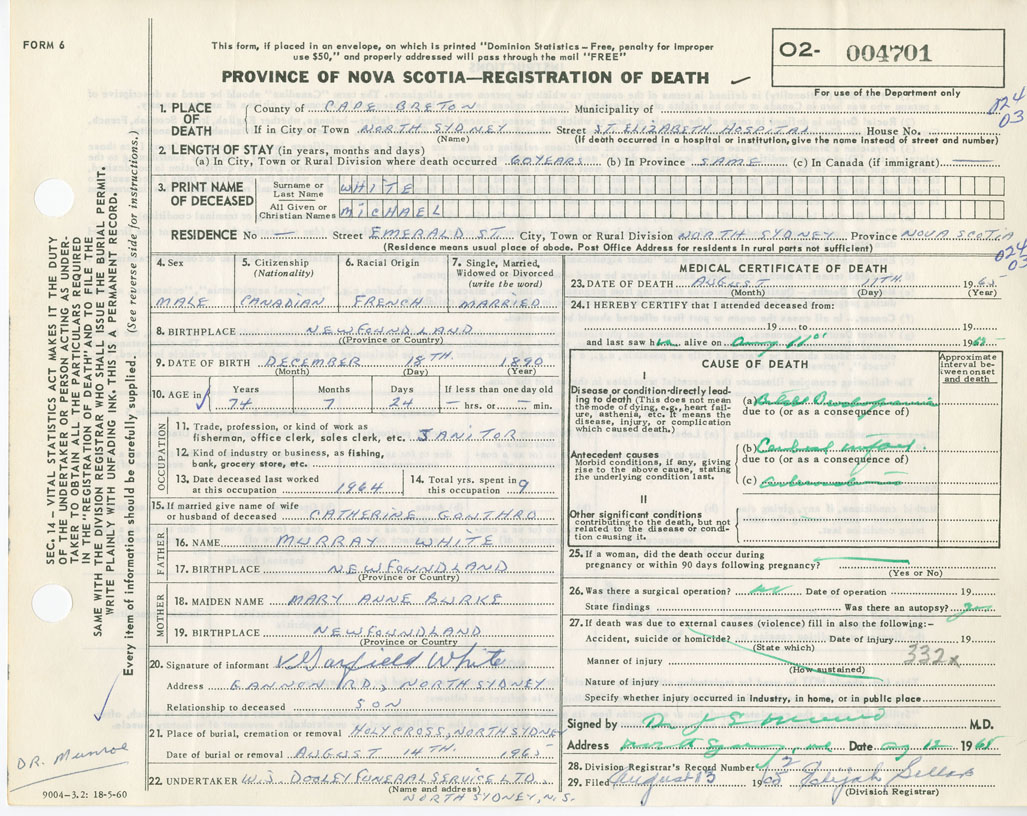 FORM 6
This form, if placed in an envelope, on which is printed "Dominion Statistics – Free, penalty for improper
use $50," and properly addressed will pass through the mail "FREE"
PROVINCE OF NOVA SCOTIA—REGISTRATION OF DEATH
O2- 004701
For use of the Department only
024
03
1. PLACE OF DEATH
County of CAPE BRETON Municipality of
If in City or Town NORTH SYDNEY Street ST. ELIZABETH HOSPITAL House No.
(Name) (If death occurred in a hospital or institution, give the name instead of street and number)
2. LENGTH OF STAY (in years, months and days)
(a) In City, Town or Rural Division where death occurred 60 YEARS (b) In Province SAME (c) In Canada (if immigrant) —
3. PRINT NAME OF DECEASED
Surname or Last Name WHITE
All Given or Christian Names MICHAEL
RESIDENCE No — Street EMERALD ST. City, Town or Rural Division NORTH SYDNEY Province NOVA SCOTIA
(Residence means usual place of abode. Post Office Address for residents in rural parts not sufficient)
024
03
4. Sex
MALE
5. Citizenship
(Nationality)
CANADIAN
6. Racial Origin
FRENCH
7. Single, Married,
Widowed or Divorced
(write the word)
MARRIED
8. BIRTHPLACE NEWFOUNDLAND
(Province or Country)
9. DATE OF BIRTH DECEMBER 18TH. 1890
(Month) (Day) (Year)
10. AGE in
Years Months Days If less than one day old
74 7 24 — hrs. or — min.
OCCUPATION
11. Trade, profession, or kind of work as
fisherman, office clerk, sales clerk, etc. JANITOR
12. Kind of industry or business, as fishing,
bank, grocery store, etc.
13. Date deceased last worked
at this occupation 1964
14. Total yrs. spent in
this occupation 9
15. If married give name of wife
or husband of deceased CATHERINE GONTHRO
FATHER
16. NAME MURRAY WHITE
17. BIRTHPLACE NEWFOUNDLAND
(Province or Country)
MOTHER
18. MAIDEN NAME MARY ANNE BURKE
19. BIRTHPLACE NEWFOUNDLAND
(Province or Country)
20. Signature of informant Garfield White
Address GANNON RD., NORTH SYDNEY
Relationship to deceased SON
21. Place of burial, cremation or removal HOLY CROSS, NORTH SYDNEY
Date of burial or removal AUGUST 14TH. 1965
22. UNDERTAKER W.J. DOOLEY FUNERAL SERVICE LTD.
(Name and address)
NORTH SYDNEY, N.S.
MEDICAL CERTIFICATE OF DEATH
23. DATE OF DEATH AUGUST 11TH. 1965
(Month) (Day) (Year)
24. I HEREBY CERTIFY that I attended deceased from:
19 to 19
and last saw him alive on Aug 11 1965
CAUSE OF DEATH
Approximate
interval be-
tween onset
and death
I
Disease or condition directly lead-
ing to death (This does not mean
the mode of dying, e.g., heart fail-
ure, asthenia, etc. It means the
disease, injury, or complication
which caused death.)
(a)
due to (or as a consequence of)
Antecedent causes
Morbid conditions, if any, giving
rise to the above cause, stating
the underlying condition last.
(b) Cerebral
due to (or as a consequence of)
(c)
II
Other significant conditions
contributing to the death, but not
related to the disease or condi-
tion causing it.
25. If a woman, did the death occur during
pregnancy or within 90 days following pregnancy?
(Yes or No)
26. Was there a surgical operation? no Date of operation 19
State findings Was there an autopsy? no
27. If death was due to external causes (violence) fill in also the following:–
Accident, suicide or homicide? Date of injury 19
(State which)
332x
Manner of injury
(How sustained)
Nature of injury
Specify whether injury occurred in industry, in home, or in public place
Signed by M.D.
Address Date Aug 12 1965
28. Division Registrar's Record Number
29. Filed August 13 1965 Elijah Sellars
(Division Registrar)
SEC. 14 – VITAL STATISTICS ACT MAKES IT THE DUTY
OF THE UNDERTAKER OR PERSON ACTING AS UNDER-
TAKER TO OBTAIN ALL THE PARTICULARS REQUIRED
IN THE "REGISTRATION OF DEATH" AND TO FILE THE
SAME WITH THE DIVISION REGISTRAR WHO SHALL ISSUE THE BURIAL PERMIT.
WRITE PLAINLY WITH UNFADING INK. THIS IS A PERMANENT RECORD.
Every item of information should be carefully supplied. (See reverse side for instructions.)
DR. Munroe
9004-3.2: 18-5-60